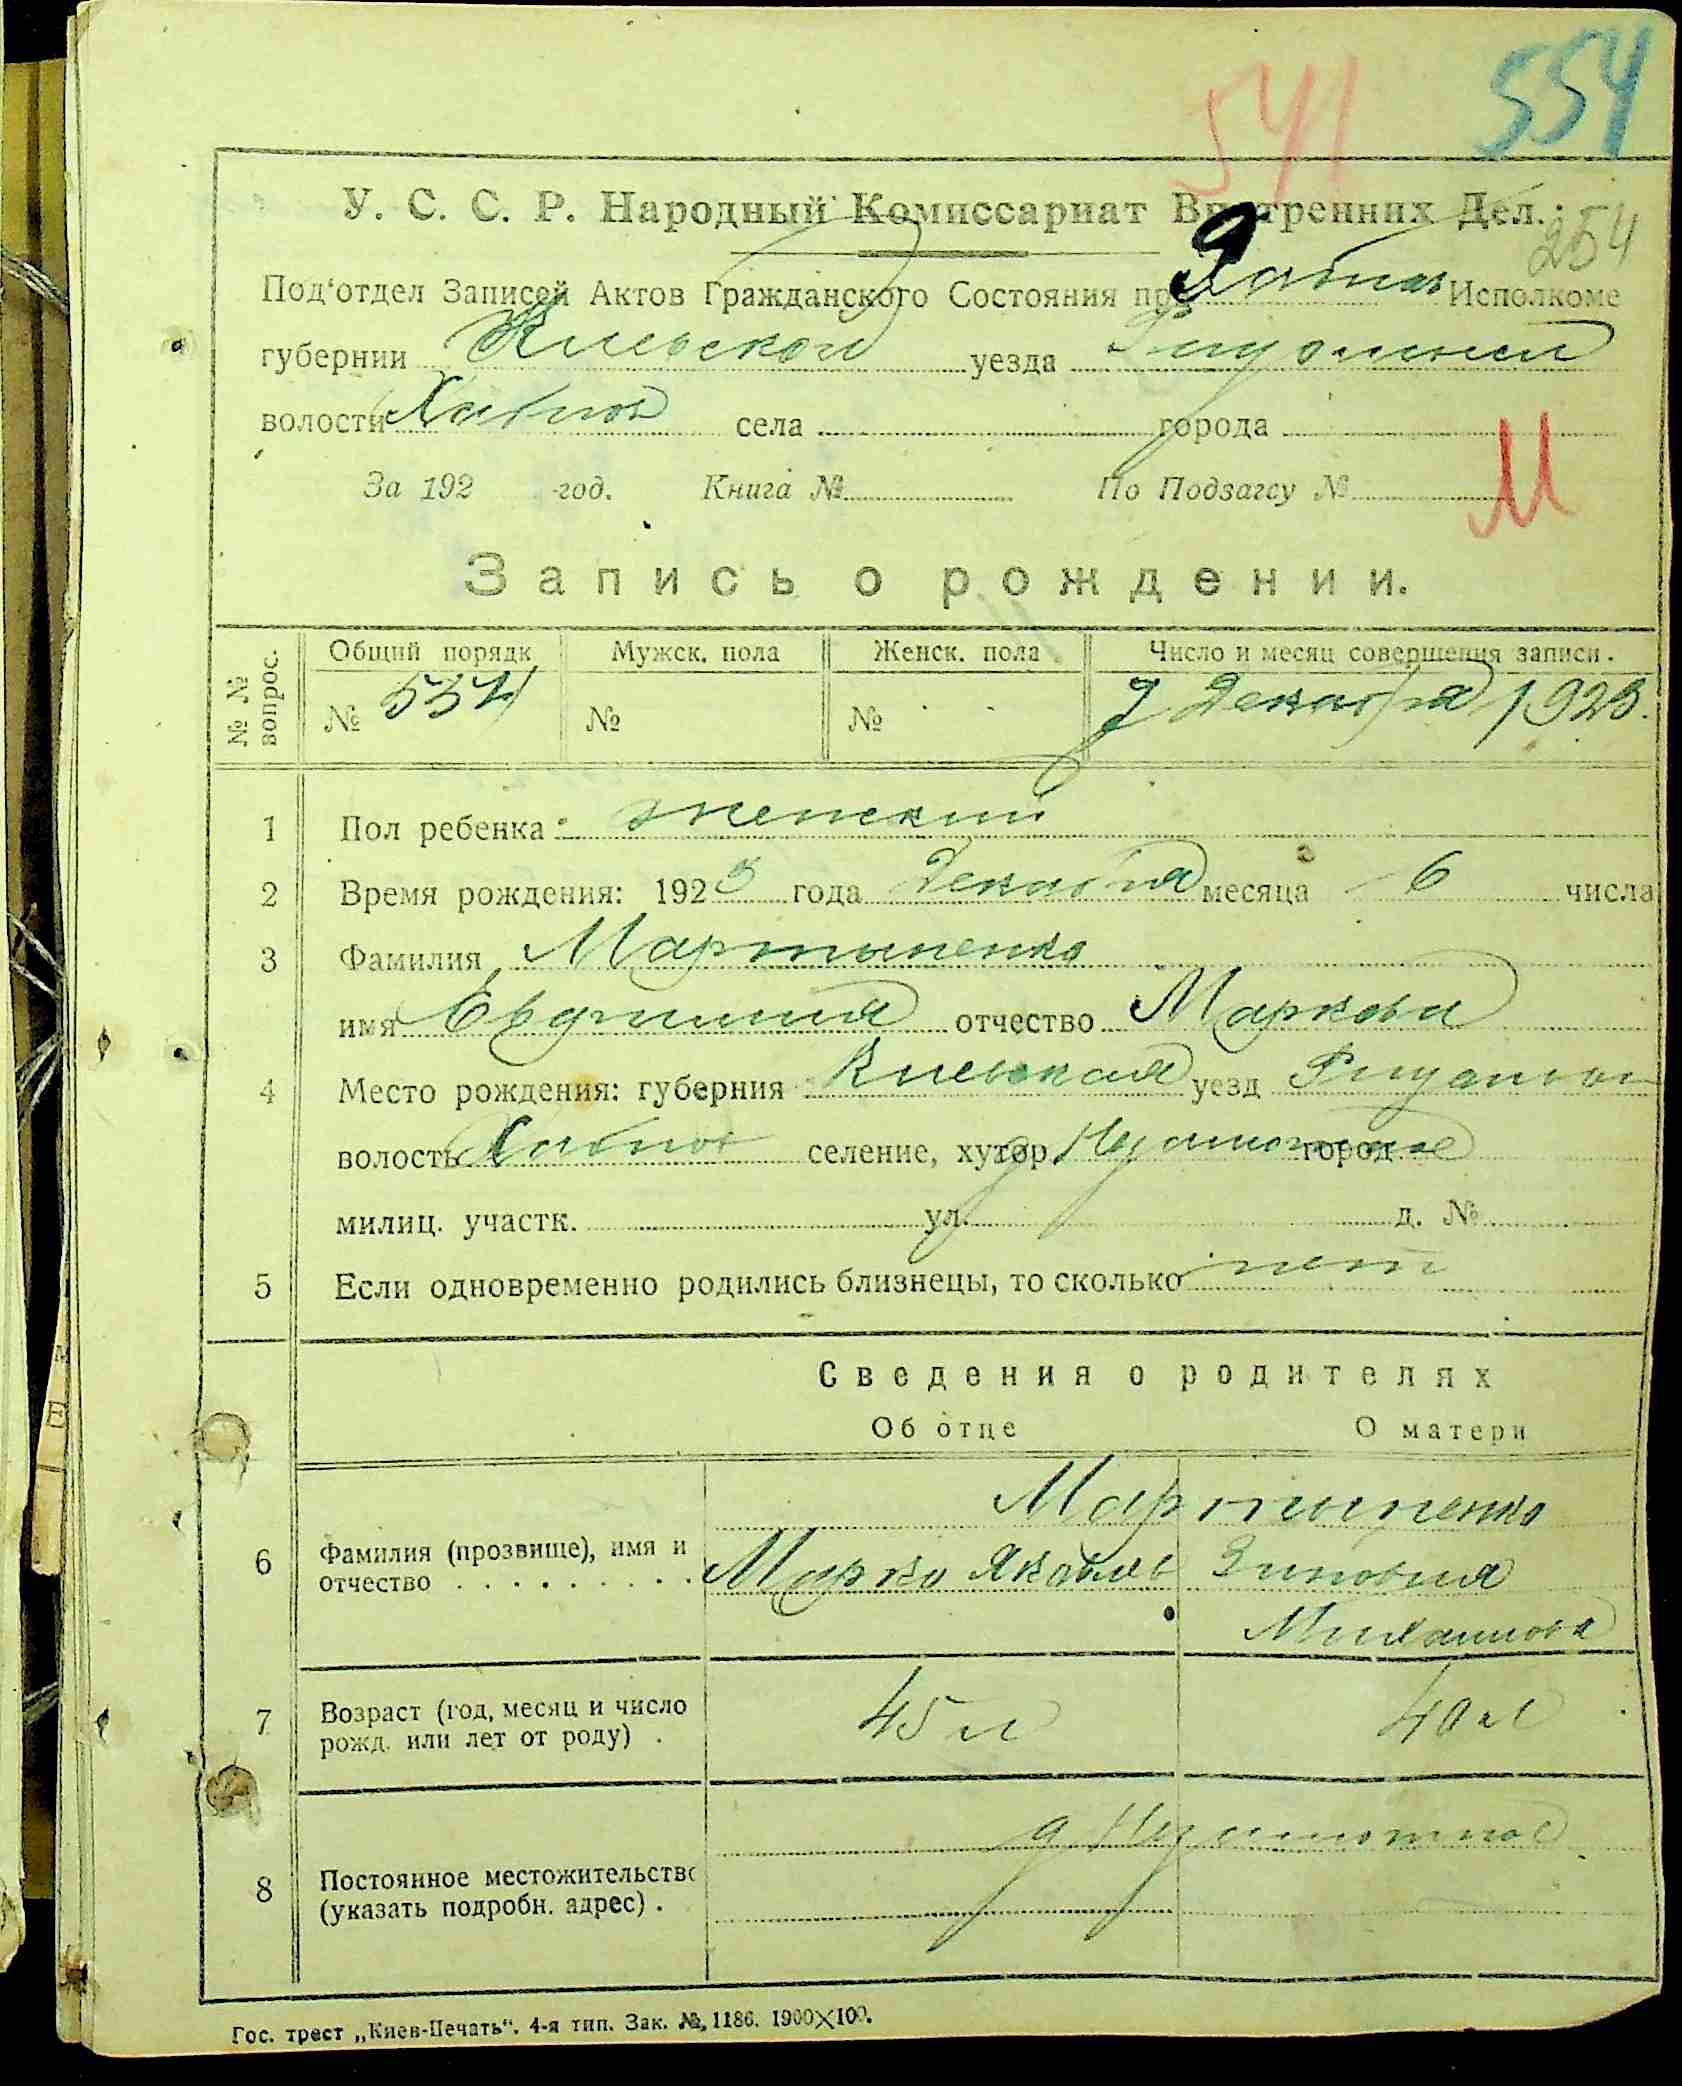 541
554
254
У. С. С. Р. Народный Комиссариат Внутренних Дел.
Под'отдел Записей Актов Гражданского Состояния при Хабнов Исполкоме
губернии Киевской уезда
волости Хабнов села города
За 192 год. Книга № По Подзагсу №
М
Запись о рождении.
№ № вопрос. Общий порядк Мужск. пола Женск. пола Число и месяц совершения записи.
№ 554 № № 7 Декабря 1923.
1 Пол ребенка женский
2 Время рождения: 1923 года Декабря месяца 6 числа
3 Фамилия Мартыненко
имя отчество Маркова
4 Место рождения: губерния Киевская уезд
волость Хабнов селение, хутор город
милиц. участк. ул. д. №
5 Если одновременно родились близнецы, то сколько нет
Сведения о родителях
Об отце О матери
Мартыненко
6 Фамилия (прозвище), имя и отчество . . . . . . . . . Марко Яковлев Зиновия
Михаилова
7 Возраст (год, месяц и число рожд. или лет от роду) . 45 л 40 л
8 Постоянное местожительство (указать подробн. адрес) .
Гос. трест „Киев-Печать“. 4-я тип. Зак. №, 1186. 1900×100.